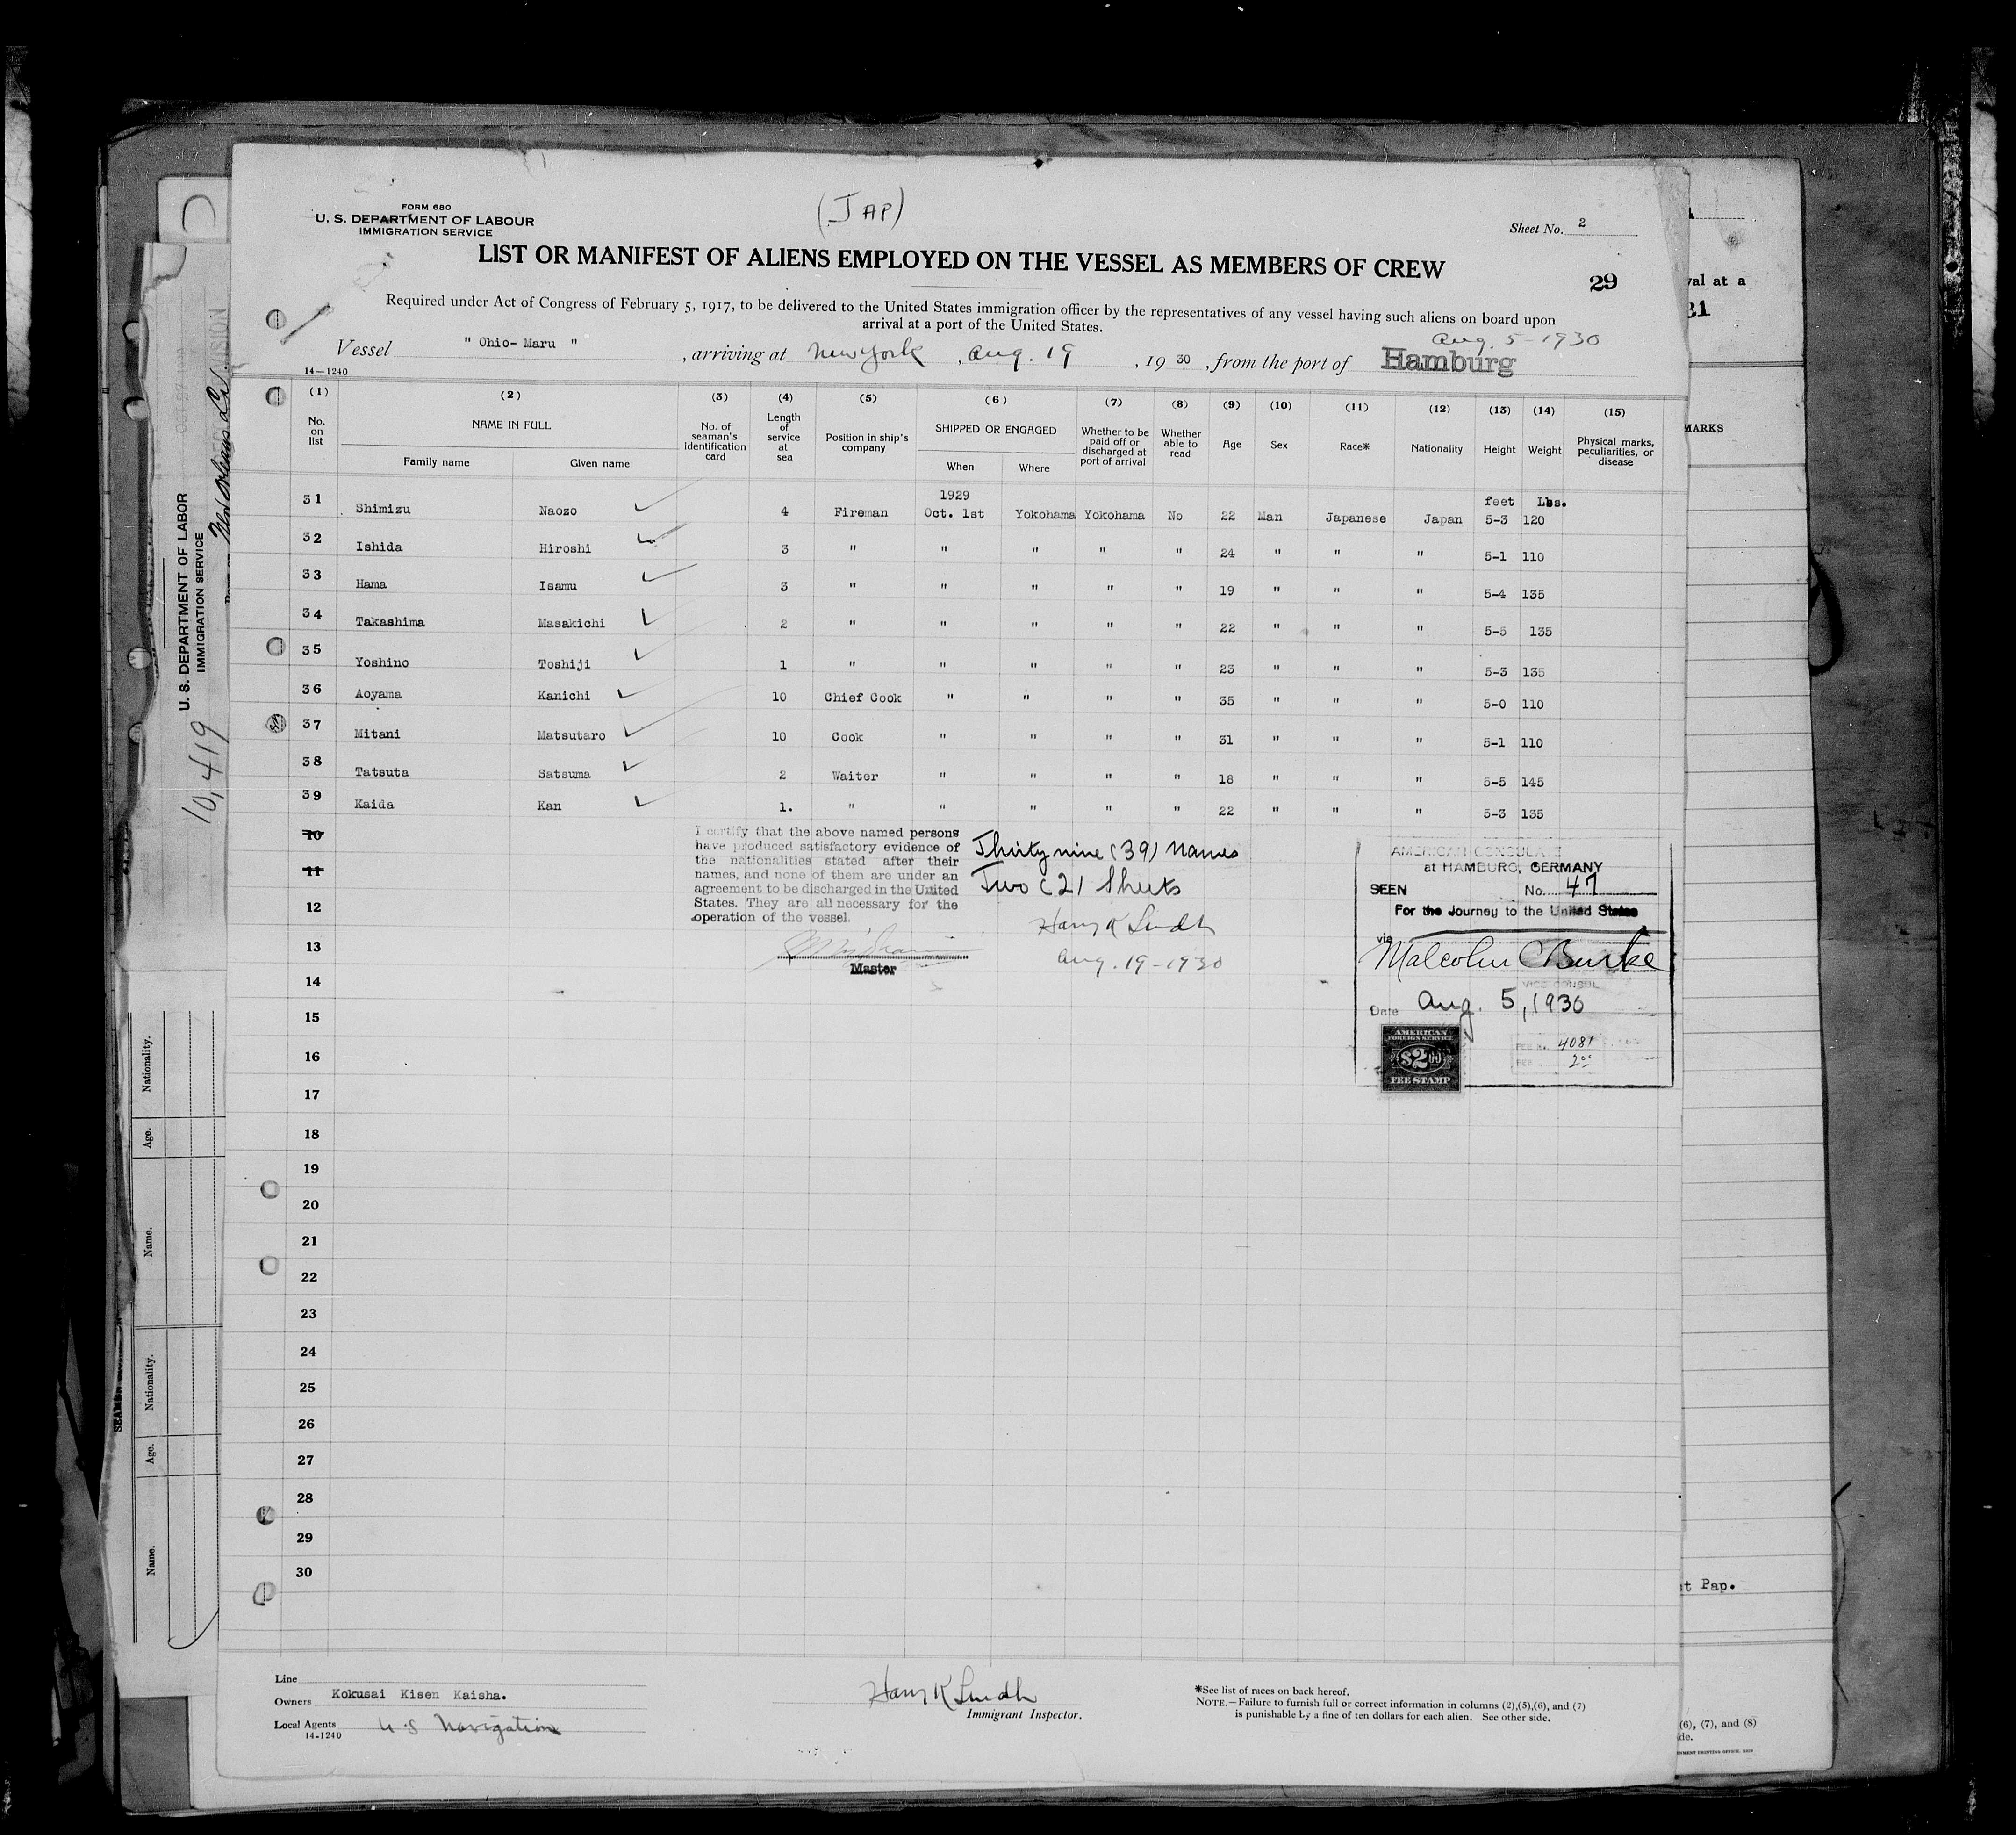 (JAP)
FORM 680
U. S. DEPARTMENT OF LABOUR
IMMIGRATION SERVICE
Sheet No. 2
LIST OR MANIFEST OF ALIENS EMPLOYED ON THE VESSEL AS MEMBERS OF CREW
29
Required under Act of Congress of February 5, 1917, to be delivered to the United States immigration officer by the representatives of any vessel having such aliens on board upon
arrival at a port of the United States.
Aug. 5-1930
Vessel " Ohio- Maru " , arriving at New York , Aug. 19 , 19 30 , from the port of Hamburg
14—1240
(1) (2) (3) (4) (5) (6) (7) (8) (9) (10) (11) (12) (13) (14) (15)
No. on list
NAME IN FULL
Family name
Given name
No. of seaman's identification card
Length of service at sea
Position in ship's company
SHIPPED OR ENGAGED
When
Where
Whether to be paid off or discharged at port of arrival
Whether able to read
Age
Sex
Race*
Nationality
Height
Weight
Physical marks, peculiarities, or disease
1929 feet Lbs.
31 Shimizu Naozo 4 Fireman Oct. 1st Yokohama Yokohama No 22 Man Japanese Japan 5-3 120
32 Ishida Hiroshi 3 " " " " " 24 " " " 5-1 110
33 Hama Isamu 3 " " " " " 19 " " " 5-4 135
34 Takashima Masakichi 2 " " " " " 22 " " " 5-5 135
35 Yoshino Toshiji 1 " " " " " 23 " " " 5-3 135
36 Aoyama Kanichi 10 Chief Cook " " " " 35 " " " 5-0 110
37 Mitani Matsutaro 10 Cook " " " " 31 " " " 5-1 110
38 Tatsuta Satsuma 2 Waiter " " " " 18 " " " 5-5 145
39 Kaida Kan 1. " " " " " 22 " " " 5-3 135
10
11
12
13
14
15
16
17
18
19
20
21
22
23
24
25
26
27
28
29
30
I certify that the above named persons
have produced satisfactory evidence of
the nationalities stated after their
names, and none of them are under an
agreement to be discharged in the United
States. They are all necessary for the
operation of the vessel.
Master
Thirty nine (39) Names
Two (2) Sheets
Harry K Lindh
Aug. 19-1930
AMERICAN CONSULATE
at HAMBURG, GERMANY
SEEN No. 47
For the Journey to the United States
via
Malcolm C Burke
VICE CONSUL
Date Aug. 5, 1930
AMERICAN
FOREIGN SERVICE
$2.00
FEE STAMP
FEE No. 4081
FEE 2.00
Line
Owners Kokusai Kisen Kaisha.
Local Agents U.S Navigation
14-1240
Harry K Lindh
Immigrant Inspector.
*See list of races on back hereof.
NOTE.—Failure to furnish full or correct information in columns (2),(5),(6), and (7)
is punishable by a fine of ten dollars for each alien. See other side.
U. S. DEPARTMENT OF LABOR
IMMIGRATION SERVICE
10,419
New Orleans La.
Nationality.
Age.
Name.
Nationality.
Age.
Name.
val at a
31
MARKS
t Pap.
(6), (7), and (8)
de.